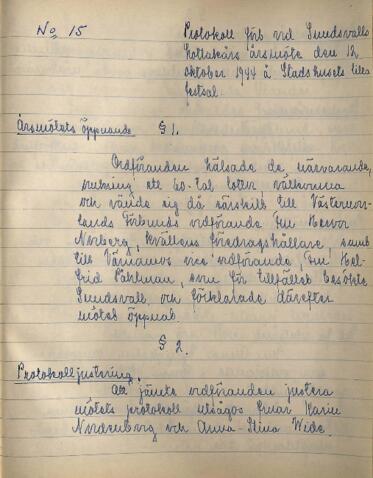 No 15
Protokoll förb vid Sundsvalls
Lottakårs årsmöte den 12
oktober 1944 å Stadshusets lilla
festsal.
Årsmötets öppnande § 1.
Ordföranden hälsade de närvarande,
ett 60-tal lottor, välkomna
och vände sig då särskilt till Västernorr-
lands Förbunds ordförande fru
Norberg, kvällens föredragshållare, samt
till Värnamos vice ordförande, fru Hel-
frid Påhlman, som för tillfället besökte
Sundsvall, och förklarade därefter
mötet öppnat.
§ 2.
Protokolljustering.
Att jämte ordföranden justera
mötets protokoll utsågos fruar Karin
Nordenborg och Anna-Stina Wide.